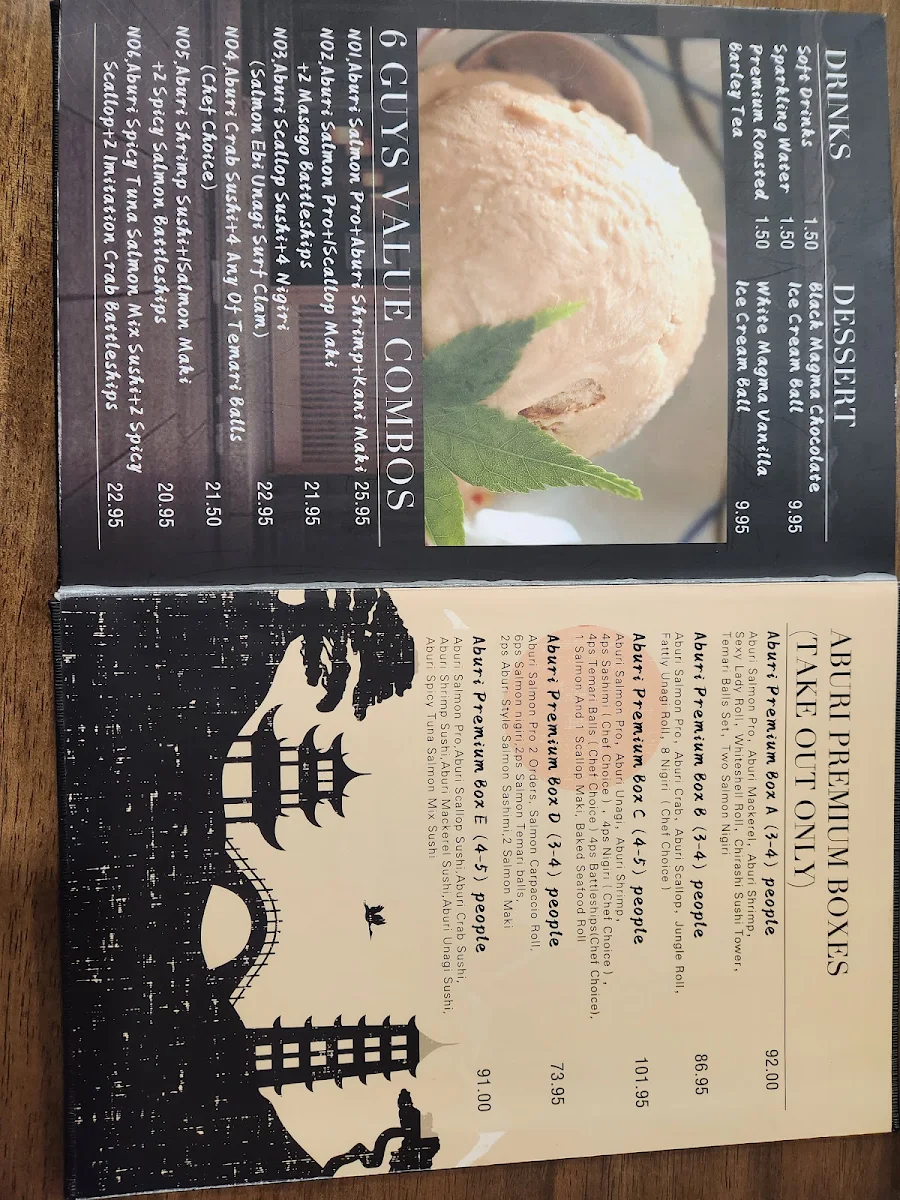 DRINKS
Soft Drinks 1.50
Sparkling Water 1.50
Premium Roasted 1.50
Barley Tea
DESSERT
Black Magma Chocolate
Ice Cream Ball 9.95
White Magma Vanilla
Ice Cream Ball 9.95
6 GUYS VALUE COMBOS
NO1,Aburi Salmon Pro+Aburi Shrimp+Kani Maki 25.95
NO2,Aburi Salmon Pro+1Scallop Maki
+2 Masago Battleships 21.95
NO3,Aburi Scallop Sushi+4 Nigiri
(Salmon Ebi Unagi Surf Clam) 22.95
NO4,Aburi Crab Sushi+4 Any Of Temari Balls
(Chef Choice) 21.50
NO5,Aburi Shrimp Sushi+1Salmon Maki
+2 Spicy Salmon Battleships 20.95
NO6,Aburi Spicy Tuna Salmon Mix Sushi+2 Spicy
Scallop+2 Imitation Crab Battleships 22.95
ABURI PREMIUM BOXES
(TAKE OUT ONLY)
Aburi Premium Box A (3-4) people 92.00
Aburi Salmon Pro, Aburi Mackerel, Aburi Shrimp,
Sexy Lady Roll, Whiteshell Roll, Chirashi Sushi Tower,
Temari Balls Set, Two Salmon Nigiri
Aburi Premium Box B (3-4) people 86.95
Aburi Salmon Pro, Aburi Crab, Aburi Scallop, Jungle Roll,
Fattly Unagi Roll, 8 Nigiri ( Chef Choice )
Aburi Premium Box C (4-5) people 101.95
Aburi Salmon Pro, Aburi Unagi, Aburi Shrimp,
4ps Sashimi ( Chef Choice ) , 4ps Nigiri ( Chef Choice ) ,
4ps Temari Balls ( Chef Choice ) 4ps Battleships(Chef Choice),
1 Salmon And 1 Scallop Maki, Baked Seafood Roll
Aburi Premium Box D (3-4) people 73.95
Aburi Salmon Pro 2 Orders, Salmon Carpaccio Roll,
6ps Salmon nigiri,2ps Salmon Temari balls,
2ps Aburi Style Salmon Sashimi,2 Salmon Maki
Aburi Premium Box E (4-5) people 91.00
Aburi Salmon Pro,Aburi Scallop Sushi,Aburi Crab Sushi,
Aburi Shrimp Sushi,Aburi Mackerel Sushi,Aburi Unagi Sushi,
Aburi Spicy Tuna Salmon Mix Sushi